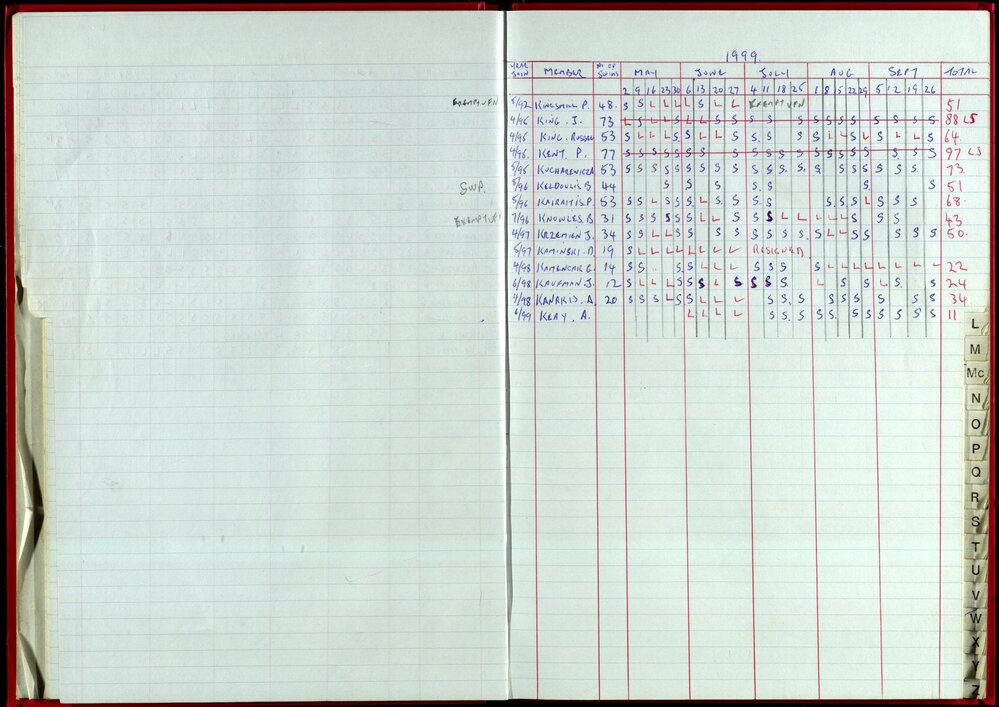 1999.
YEAR JOIN MEMBER No OF SWIMS MAY JUNE JULY AUG SEPT TOTAL
2 9 16 23 30 6 13 20 27 4 11 18 25 1 8 15 22 29 5 12 19 26
5/92 KINGSMILL P. 48. S S L L L L S L L EXEMPT VFN 51
4/96 KING. J. 73 L S L L S L L S S S S S S S S S S S S S S 88 LS
4/96 KING. RUSSEL 53 S L L L S S L L S S S S S L L S L S L L S 64
4/96. KENT. P. 77 S S S S S S S S S S S S S S S S S S S S 97 LS
5/95 KUCHAREWICZ A 53 S S S S S S S S S S S S S S S S S S S S 73
SWP. 5/96 KELDOULIS B 44 S S S S S S S 51
5/96 KAIRAITIS P. 53 S S L S S S L S S S S S S S L S S S 68.
7/96 KNOWLES B 31 S S S S S S L L S S S L L L L L S S S 43
4/97 KRZEMIEN J. 34 S S L L S S S S S S S S S L L S S S S S 50.
5/97 KAMINSKI. D. 19 S L L L L L L L L RESIGNED
4/98 KAMENCAR G. 14 S S S S L L L S S S S L L L L L L L L 22
6/98 KAUFMAN. J. 12 S L L L S S S L S S S S L S S L S S 24
4/98 KANAKIS. A. 20 S S S L S S L L L S S S S S S S S S S 34
6/99 KEAY. A. L L L L S S S S S S S S S S S 11
L
M
Mc
N
O
P
Q
R
S
T
U
V
W
X
Y
Z